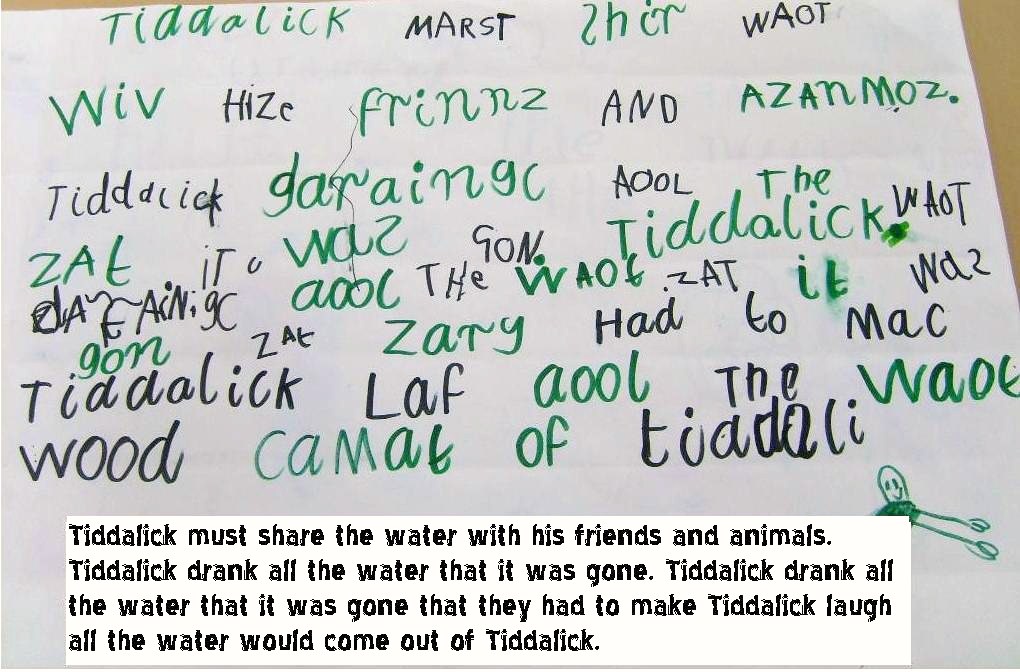 Tiddalick MARST Zhir WAOT
WiV HiZe frinnz AND AZANMOZ.
Tiddalick garaingc AOOL The WAOT
ZAt iT waz GON. Tiddalick.
dAraiNgc aool THe WAOt ZAT it waz
gon ZAt Zary Had to Mac
Tiddalick Laf aool The Waot
wood CaMat of tiddali
Tiddalick must share the water with his friends and animals.
Tiddalick drank all the water that it was gone. Tiddalick drank all
the water that it was gone that they had to make Tiddalick laugh
all the water would come out of Tiddalick.